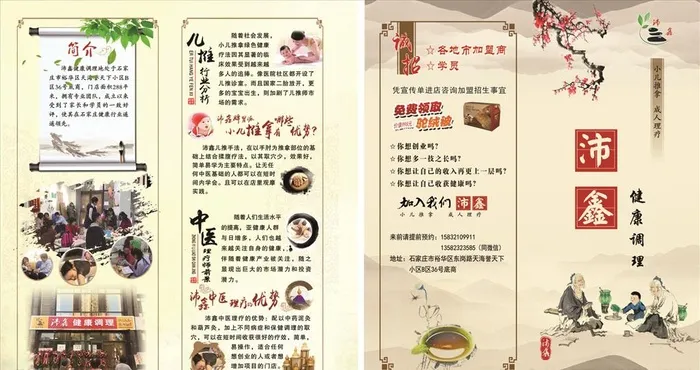 简介
沛鑫健康调理地处于石家
庄市裕华区天海誉天下小区B区
36号底商，门店面积288平
米，拥有专业团队，成立以来
受到了家长和学员的一致好
评，使其在石家庄健康行业遥
遥领先。
沛鑫 健康调理
儿推
行业分析
ER TUI HANG YE FEN XI
随着社会发展，
小儿推拿绿色健康
疗法因其显著的临
床效果受到越来越
多人的选择。像医院社区都开设了
儿推诊室。而且国家二胎放开，更
多的宝宝出生，则加剧了儿推师市
场的需求。
小儿推拿有哪些优势？
沛鑫儿推手法，在以手肘为推拿部位的基
础上结合揉腹疗法，以其取穴少，效果好，
简单易学为主要特点。让无任
何中医基础的人都可以在短时
间内学会。且可以在店里观摩
实践。
中医
理疗师前景
随着人们生活水平
的提高，亚健康人群
与日增多，人们也越
来越关注自身的健康，
伴随着健康产业被关注，随之
显现出巨大的市场潜力和投资
潜力。
沛鑫中医理疗的优势
沛鑫中医理疗的优势：配以中药泥灸
和葫芦灸。加上不同病症和保健调理的取
穴，可以在短时间收获很好的疗效，简单，
易操作，适合任何
想创业的人或者想
增加项目的门店。
诚招
☆各地市加盟商
☆学员
凭宣传单进店咨询加盟招生事宜
免费领取
驼绒被
☆你想创业吗？
☆你想多一技之长吗？
☆你想让自己的收入再更上一层吗？
☆你想让自己收获健康吗？
加入我们 沛鑫
小儿推拿 成人理疗
来前请提前预约：15832109911
13582323585（同微信）
地址：石家庄市裕华区东岗路天海誉天下
小区B区36号底商
沛鑫
小儿推拿 成人理疗
沛鑫
健康调理